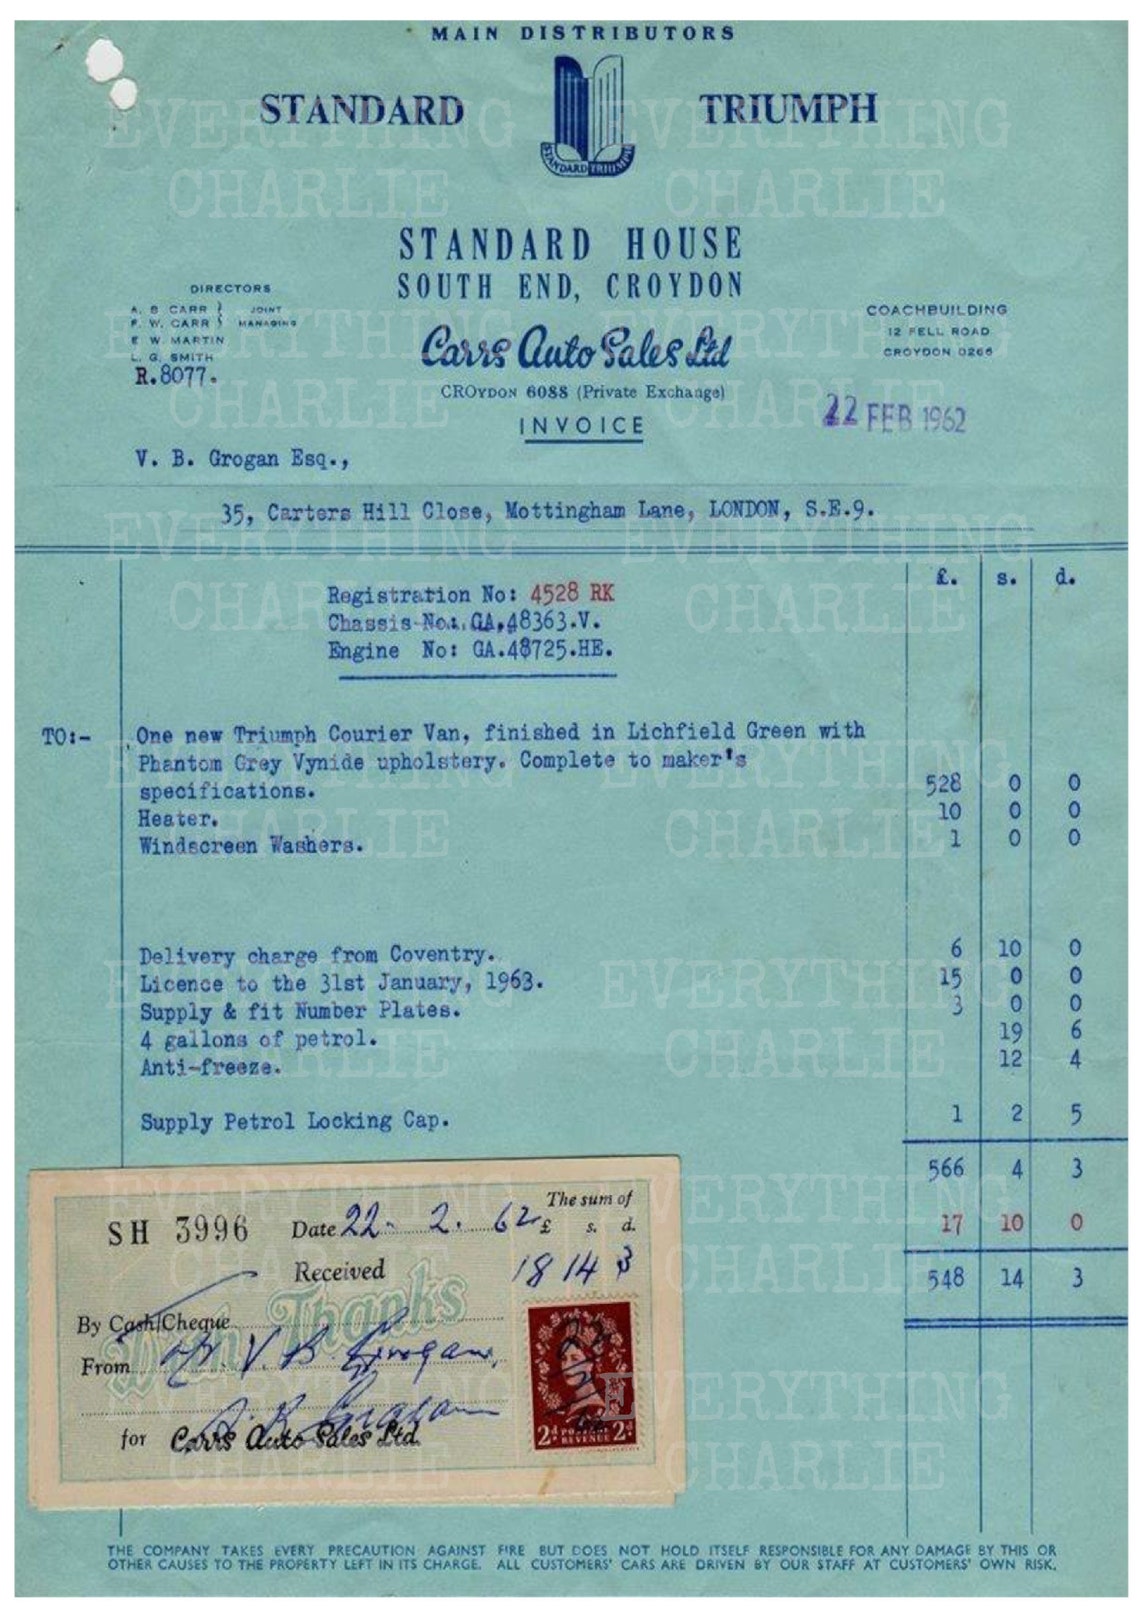 MAIN DISTRIBUTORS
STANDARD TRIUMPH
STANDARD TRIUMPH
STANDARD HOUSE
SOUTH END, CROYDON
DIRECTORS
A. B CARR } JOINT
F. W. CARR } MANAGING
E W. MARTIN
L. G. SMITH
R.8077.
COACHBUILDING
12 FELL ROAD
CROYDON 0266
Carrs Auto Sales Ltd
CROYDON 6088 (Private Exchange)
INVOICE
22 FEB 1962
V. B. Grogan Esq.,
35, Carters Hill Close, Mottingham Lane, LONDON, S.E.9.
£. s. d.
Registration No: 4528 RK
Chassis No: GA.48363.V.
Engine No: GA.48725.HE.
TO:- One new Triumph Courier Van, finished in Lichfield Green with
Phantom Grey Vynide upholstery. Complete to maker's
specifications. 528 0 0
Heater. 10 0 0
Windscreen Washers. 1 0 0
Delivery charge from Coventry. 6 10 0
Licence to the 31st January, 1963. 15 0 0
Supply & fit Number Plates. 3 0 0
4 gallons of petrol. 19 6
Anti-freeze. 12 4
Supply Petrol Locking Cap. 1 2 5
566 4 3
17 10 0
548 14 3
SH 3996 Date 22. 2. 62 The sum of
£ s. d.
Received 18 14 3
With Thanks
By Cash/Cheque
From Mr. V. B Grogan,
for Carrs Auto Sales Ltd.
2d POSTAGE REVENUE 2d
THE COMPANY TAKES EVERY PRECAUTION AGAINST FIRE BUT DOES NOT HOLD ITSELF RESPONSIBLE FOR ANY DAMAGE BY THIS OR
OTHER CAUSES TO THE PROPERTY LEFT IN ITS CHARGE. ALL CUSTOMERS' CARS ARE DRIVEN BY OUR STAFF AT CUSTOMERS' OWN RISK.
EVERYTHING CHARLIE